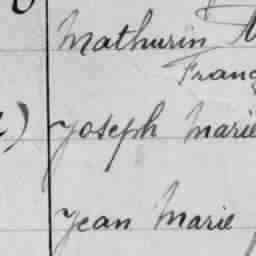 Mathurin
Franç
Joseph Marie
Jean Marie